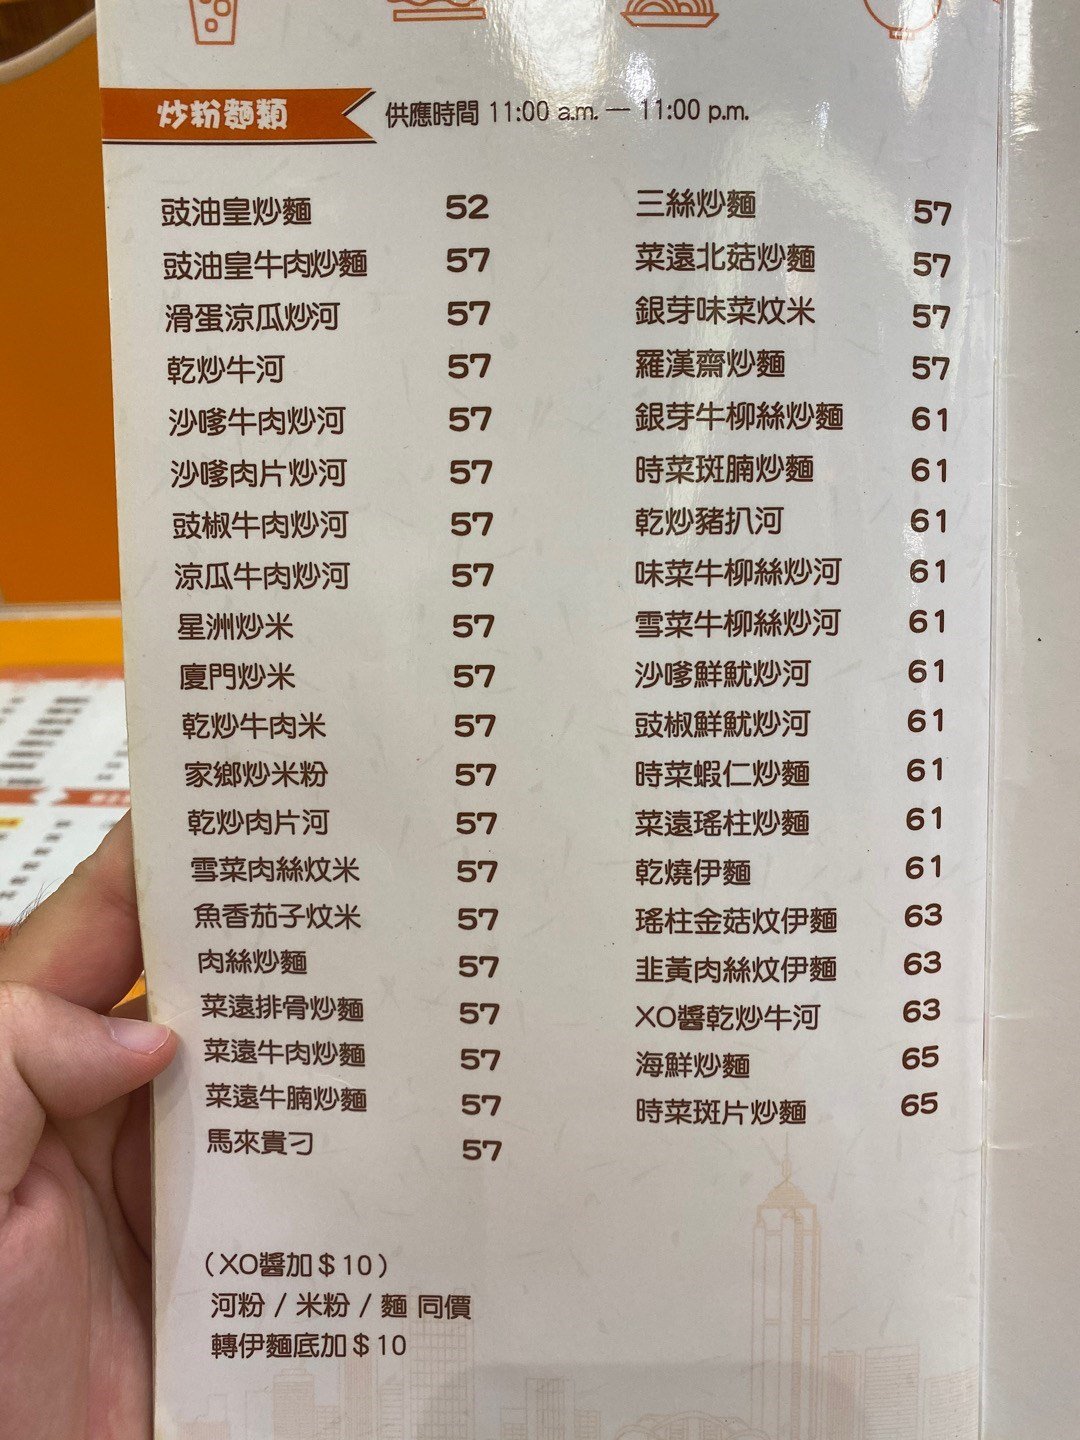 炒粉麵類
供應時間 11:00 a.m. — 11:00 p.m.
豉油皇炒麵 52
豉油皇牛肉炒麵 57
滑蛋涼瓜炒河 57
乾炒牛河 57
沙嗲牛肉炒河 57
沙嗲肉片炒河 57
豉椒牛肉炒河 57
涼瓜牛肉炒河 57
星洲炒米 57
廈門炒米 57
乾炒牛肉米 57
家鄉炒米粉 57
乾炒肉片河 57
雪菜肉絲炆米 57
魚香茄子炆米 57
肉絲炒麵 57
菜遠排骨炒麵 57
菜遠牛肉炒麵 57
菜遠牛腩炒麵 57
馬來貴刁 57
三絲炒麵 57
菜遠北菇炒麵 57
銀芽味菜炆米 57
羅漢齋炒麵 57
銀芽牛柳絲炒麵 61
時菜斑腩炒麵 61
乾炒豬扒河 61
味菜牛柳絲炒河 61
雪菜牛柳絲炒河 61
沙嗲鮮魷炒河 61
豉椒鮮魷炒河 61
時菜蝦仁炒麵 61
菜遠瑤柱炒麵 61
乾燒伊麵 61
瑤柱金菇炆伊麵 63
韭黃肉絲炆伊麵 63
XO醬乾炒牛河 63
海鮮炒麵 65
時菜斑片炒麵 65
（XO醬加＄10）
河粉 / 米粉 / 麵 同價
轉伊麵底加＄10